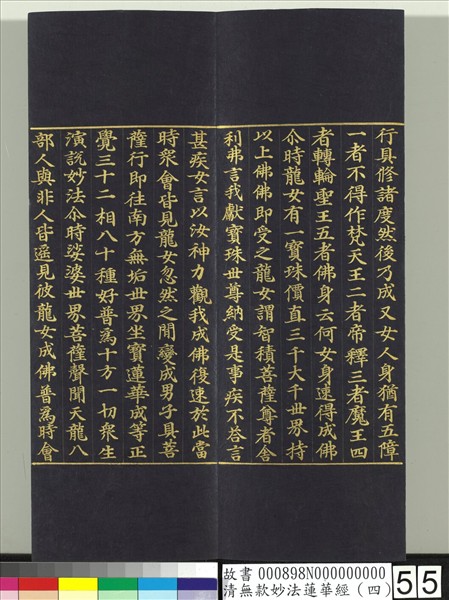 行具修諸度然後乃成又女人身猶有五障
一者不得作梵天王二者帝釋三者魔王四
者轉輪聖王五者佛身云何女身速得成佛
尒時龍女有一寶珠價直三千大千世界持
以上佛佛即受之龍女謂智積菩薩尊者舍
利弗言我獻寶珠世尊納受是事疾不荅言
甚疾女言以汝神力觀我成佛復速於此當
時衆會皆見龍女忽然之間變成男子具菩
薩行即往南方無垢世界坐寶蓮華成等正
覺三十二相八十種好普為十方一切衆生
演說妙法尒時娑婆世界菩薩聲聞天龍八
部人與非人皆遥見彼龍女成佛普為時會
故書 000898N000000000
清無款妙法蓮華經（四）
55